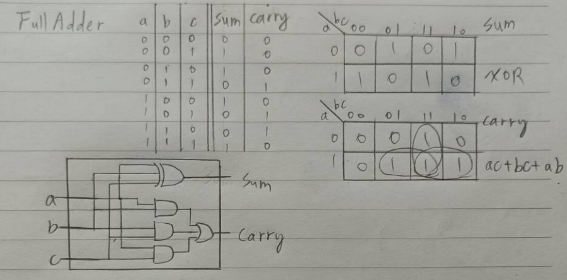 Full Adder
a b c sum carry
0 0 0 0 0
0 0 1 1 0
0 1 0 1 0
0 1 1 0 1
1 0 0 1 0
1 0 1 0 1
1 1 0 0 1
1 1 1 1 0
bc Sum
a 00 01 11 10
0 0 1 0 1
1 1 0 1 0 XOR
bc
a 00 01 11 10 carry
0 0 0 1 0
1 0 1 1 1 ac+bc+ab
a
b
c
Sum
Carry